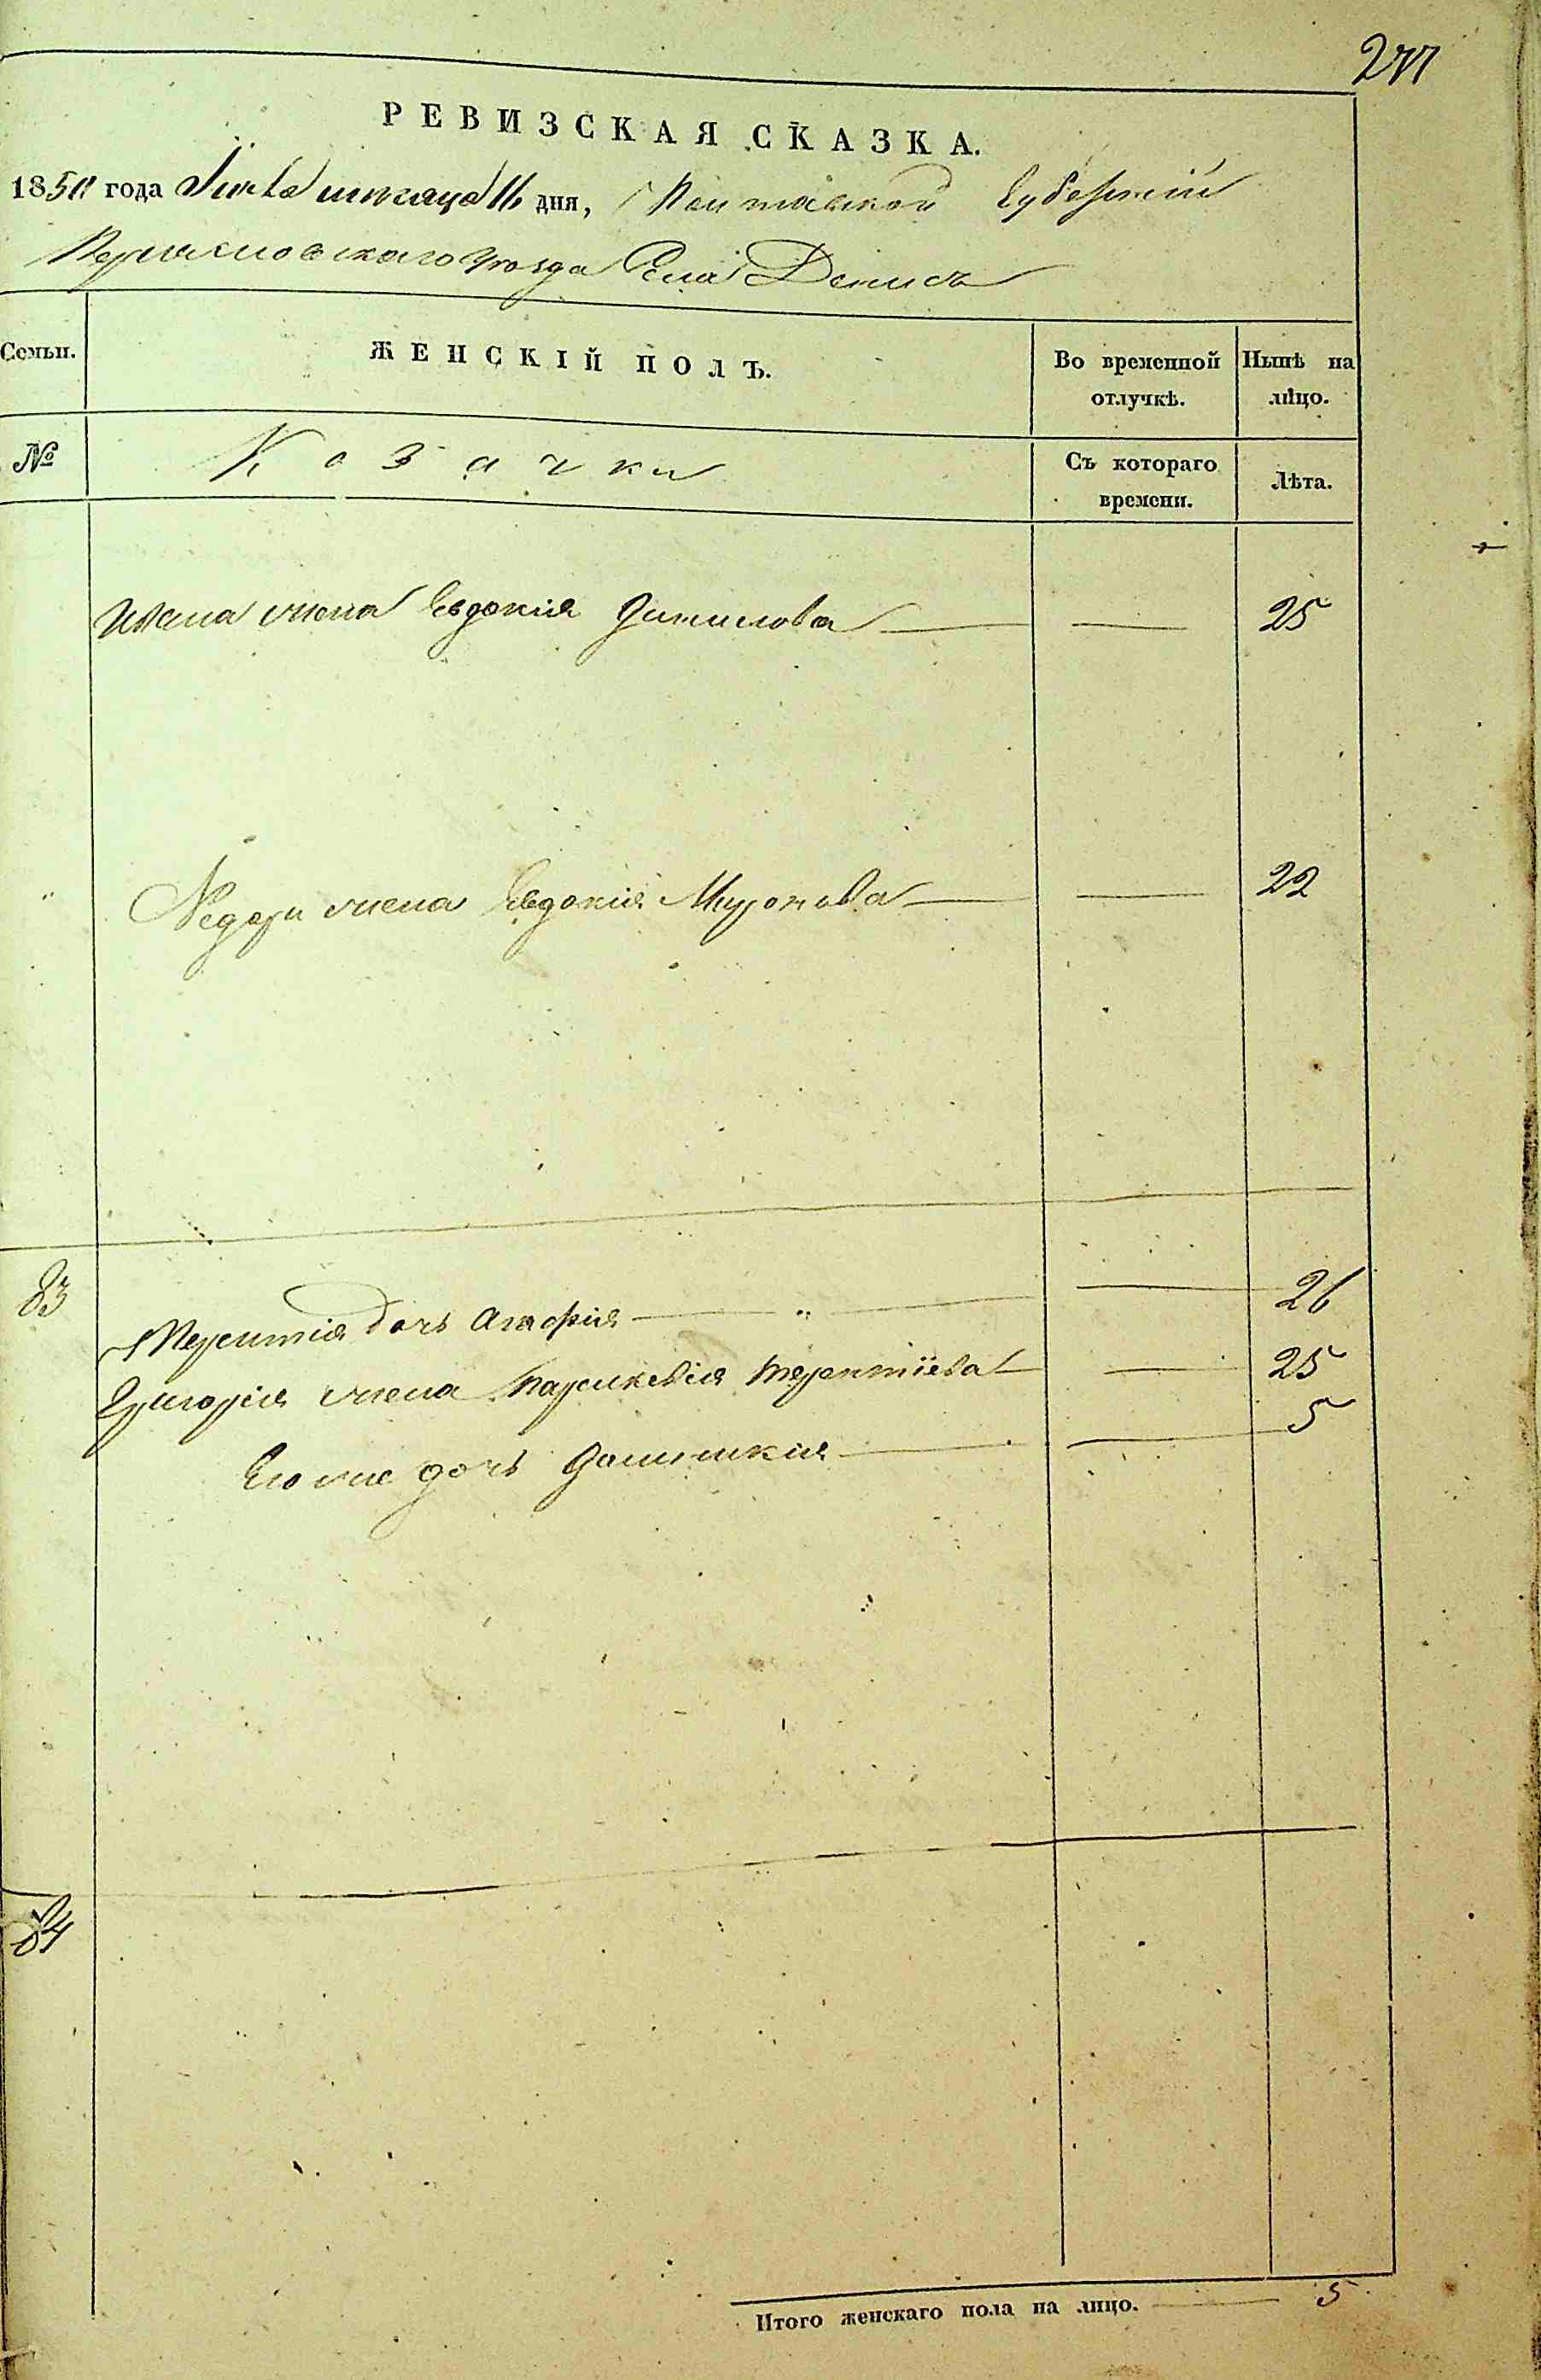 271
РЕВИЗСКАЯ СКАЗКА.
1850 года дня, Полтавской Губерніи
Переяславскаго уезда Села Денисъ
Семьи.
ЖЕНСКІЙ ПОЛЪ.
Во временной отлучкѣ.
Нынѣ на лицо.
№
Козачки
Съ котораго времени.
Лѣта.
жена Евдокія Данилова — — 25
Федора жена Евдокія Миронова — — 22
83
Терентія дочь Агафія — " — — 26
Григорія жена Параскевія Терентіева — — 25
Его же дочь — — 5
84
Итого женскаго пола на лицо. — 5